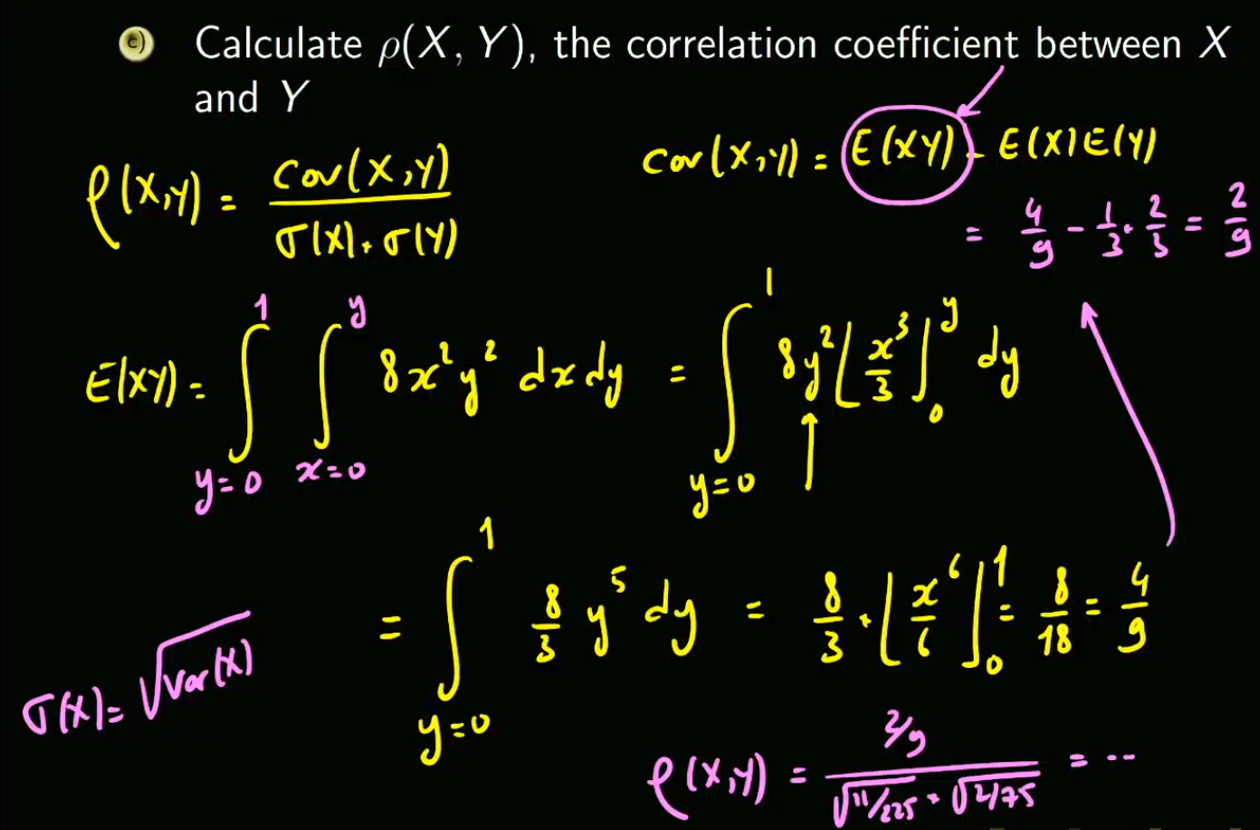 c) Calculate ρ(X, Y), the correlation coefficient between X
and Y
ρ(X,Y) = cov(X,Y) / σ(X)·σ(Y)
cov(X,Y) = E(XY) - E(X)E(Y)
= 4/9 - 1/3 · 2/3 = 2/9
E(XY) = ∫_{y=0}^{1} ∫_{x=0}^{y} 8x²y² dx dy = ∫_{y=0}^{1} 8y² [x³/3]_0^y dy
= ∫_{y=0}^{1} 8/3 y⁵ dy = 8/3 · [x⁶/6]_0^1 = 8/18 = 4/9
σ(X) = √var(X)
ρ(X,Y) = 2/9 / √11/225 · √2/75 = ...